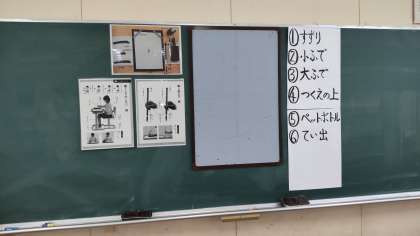 ①すずり
②小ふで
③大ふで
④つくえの上
⑤ペットボトル
⑥てい出